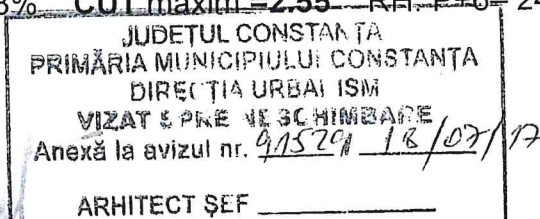 3% CUT maxim =2.55 RH P+6= 24
JUDEȚUL CONSTANȚA
PRIMĂRIA MUNICIPIULUI CONSTANȚA
DIRECȚIA URBANISM
VIZAT SPRE NESCHIMBARE
Anexă la avizul nr. 91529 18/07/17
ARHITECT ȘEF